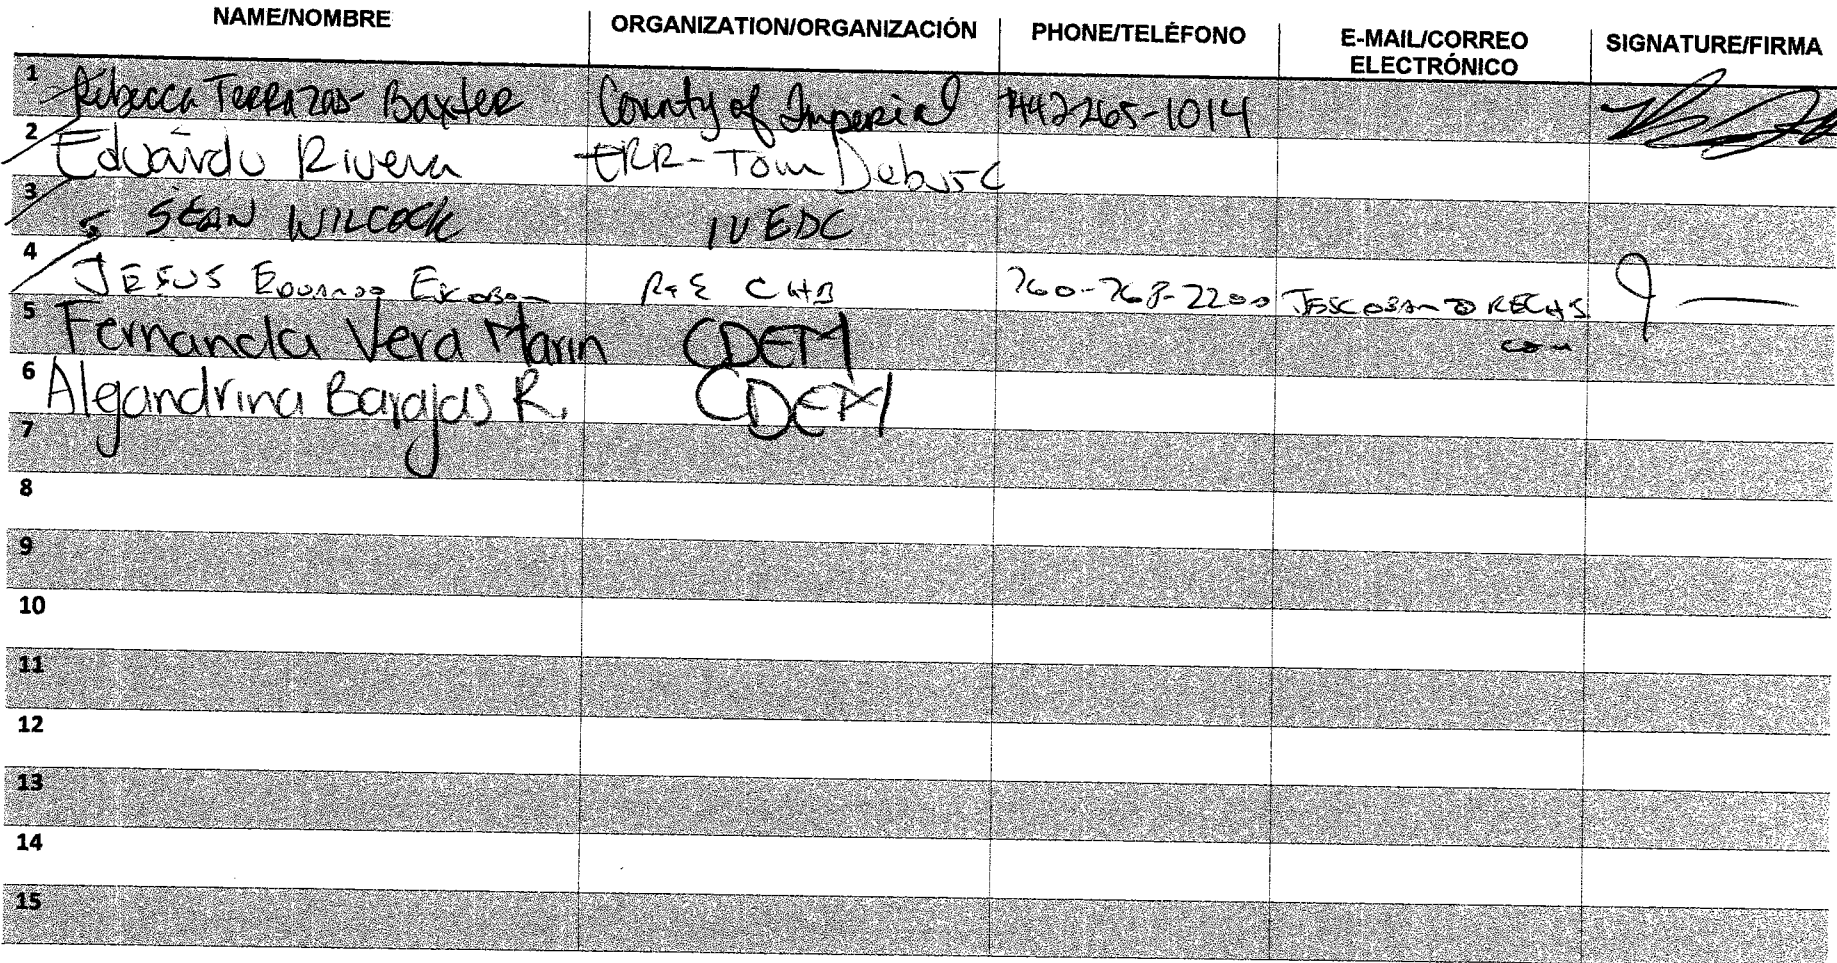 NAME/NOMBRE ORGANIZATION/ORGANIZACIÓN PHONE/TELÉFONO E-MAIL/CORREO ELECTRÓNICO SIGNATURE/FIRMA
1 Rebecca Terrazas-Baxter County of Imperial 442-265-1014
2 Eduardo Rivera ERR- Tom
3 SEAN WILCOCK IVEDC
4 JESUS EDUARDO ESCOBAR R&E CHB 760-768-2200
5 Fernanda Vera Marin CDEM
6 Alejandrina Barajas R. CDEM
7
8
9
10
11
12
13
14
15